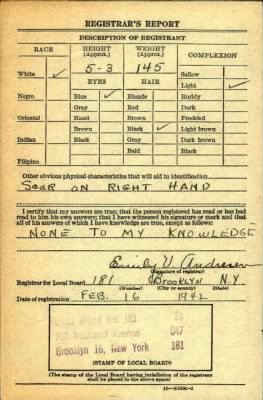 REGISTRAR'S REPORT
DESCRIPTION OF REGISTRANT
RACE HEIGHT (Approx.) WEIGHT (Approx.) COMPLEXION
5-3 145 Sallow
White ✓ EYES HAIR Light ✓
Negro Blue ✓ Blonde Ruddy
Gray Red Dark
Oriental Hazel Brown Freckled
Brown Black ✓ Light brown
Indian Black Gray Dark brown
Bald Black
Filipino
Other obvious physical characteristics that will aid in identification
SCAR ON RIGHT HAND
I certify that my answers are true; that the person registered has read or has had
read to him his own answers; that I have witnessed his signature or mark and that
all of his answers of which I have knowledge are true, except as follows:
NONE TO MY KNOWLEDGE
Emily V. Andresen
(Signature of registrar)
Registrar for Local Board 181 BROOKLYN N.Y
(Number) (City or county) (State)
Date of registration FEB. 16 1942
Local Board 181
Avenue 047
Brooklyn 16, New York 181
(STAMP OF LOCAL BOARD)
(The stamp of the Local Board having jurisdiction of the registrant
shall be placed in the above space)